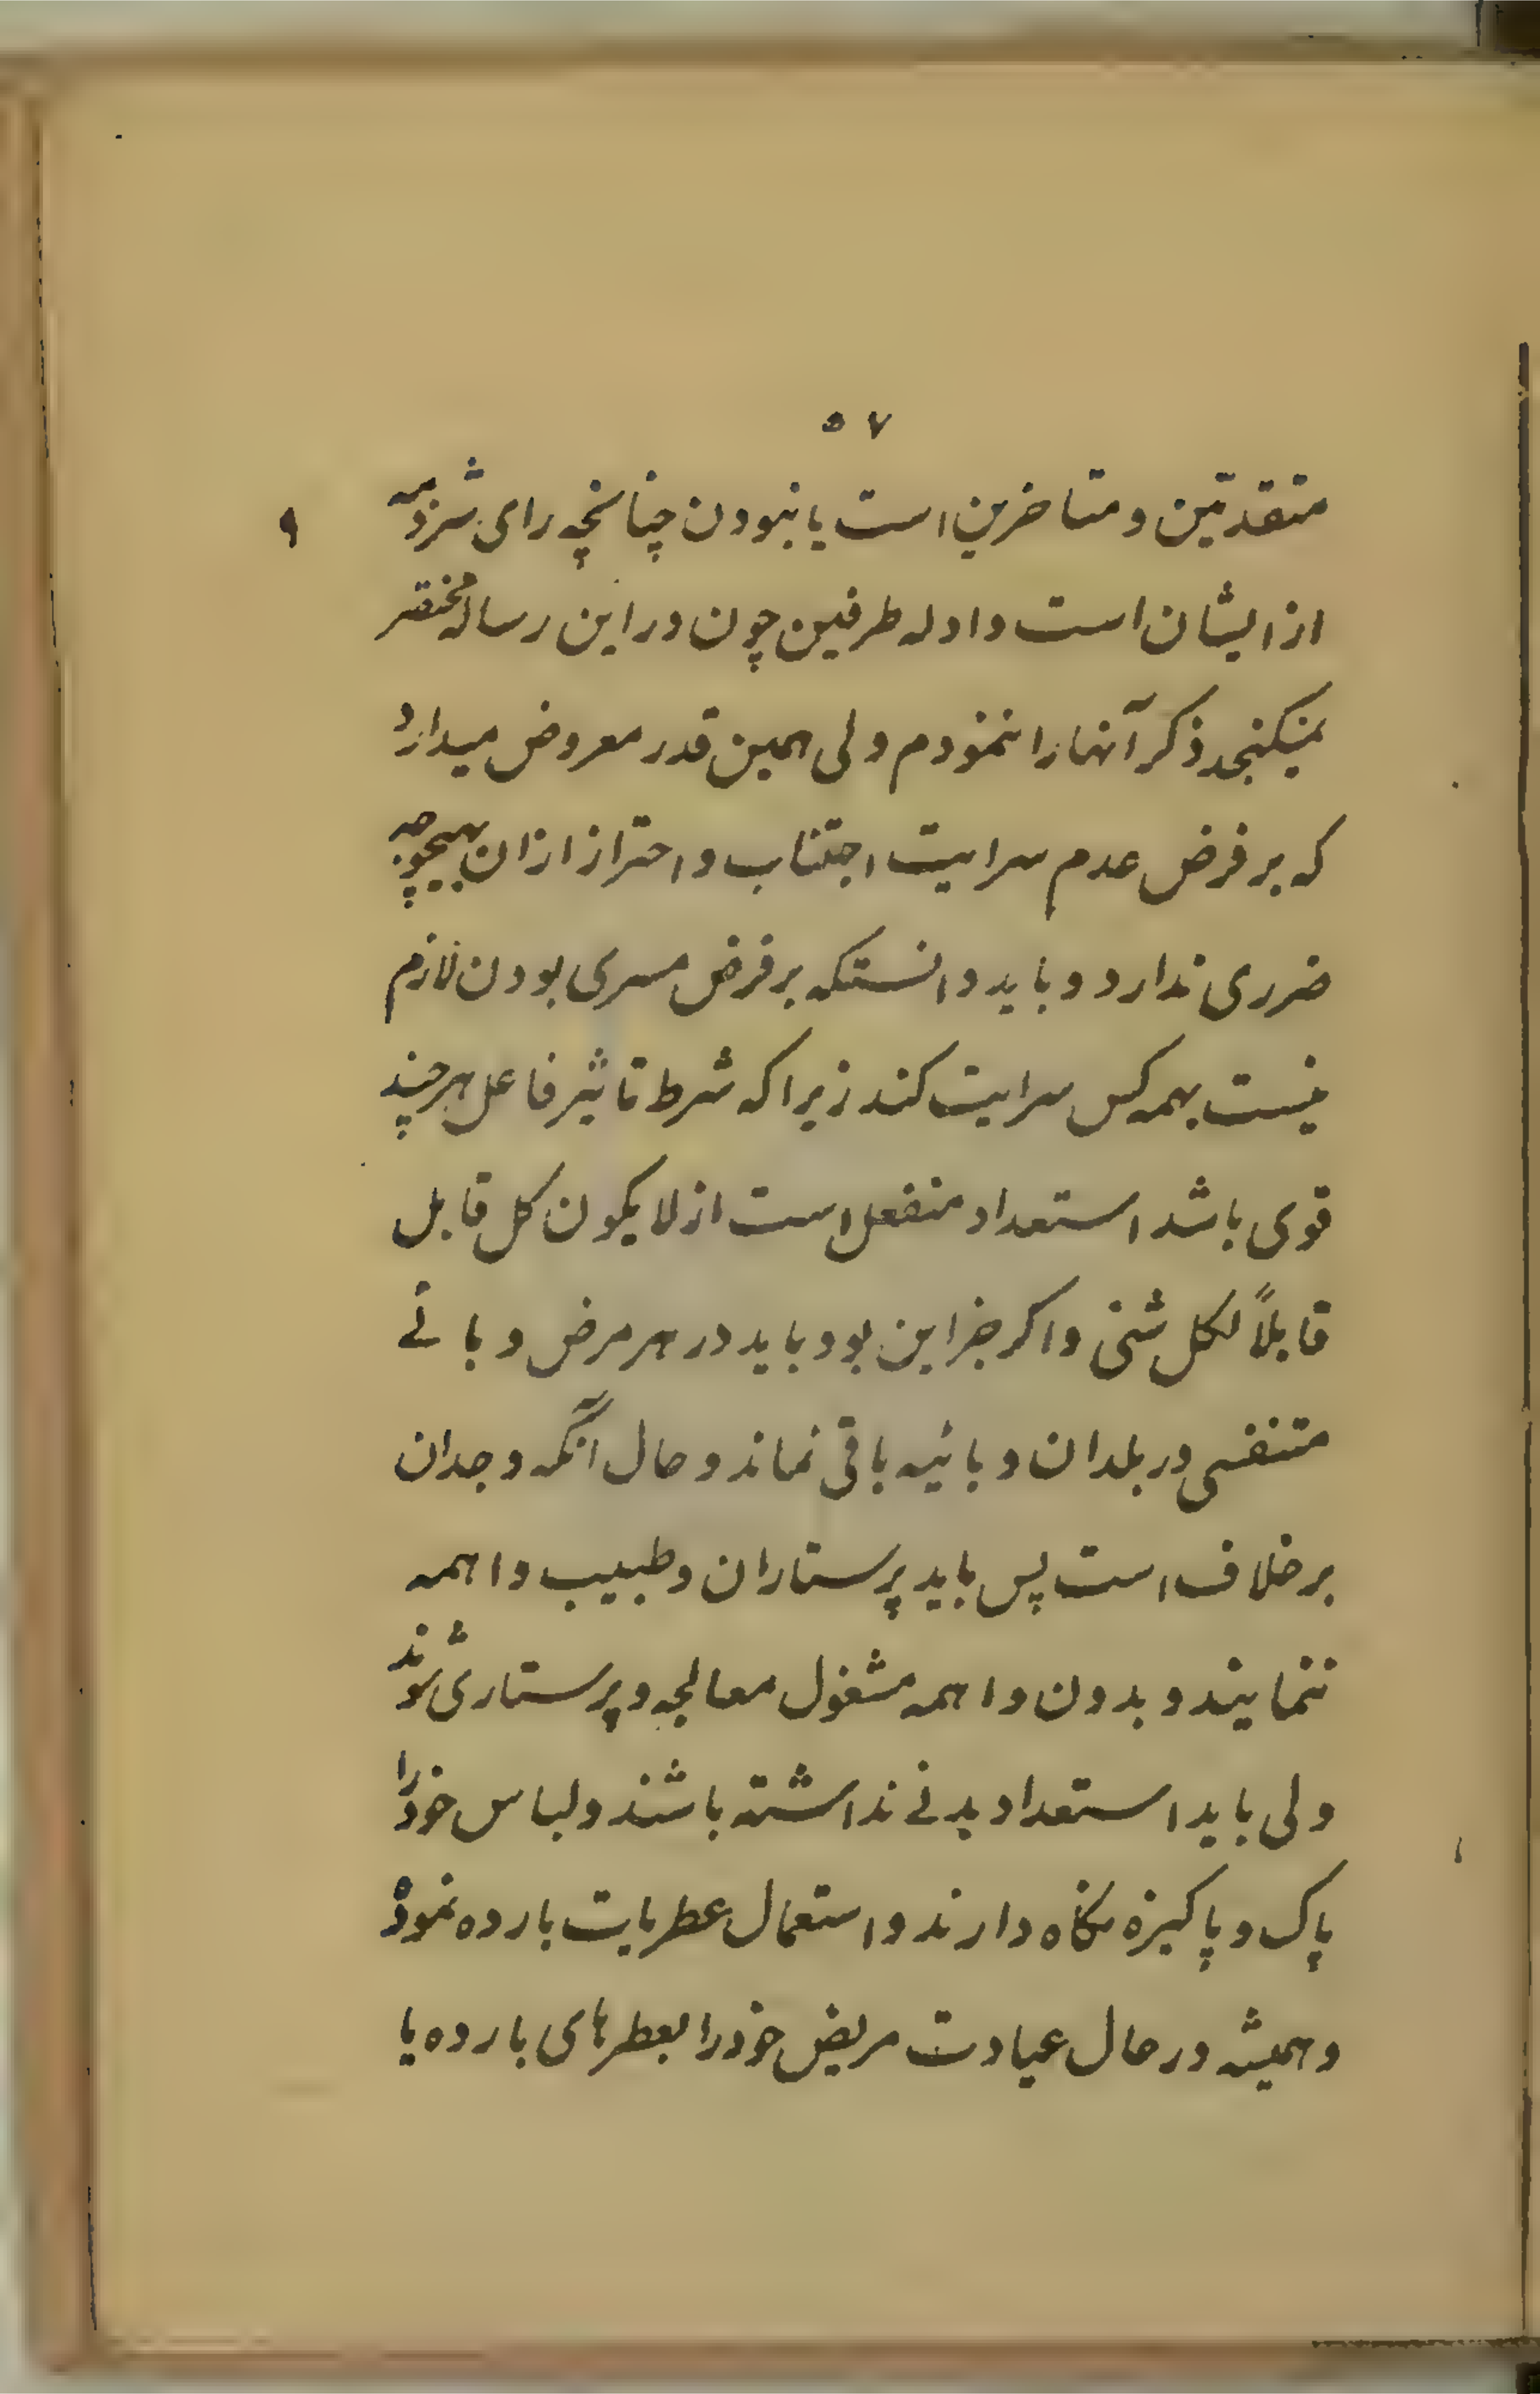 ۵۷
متقدمین و متاخرین است یا نبودن چنانچه رای شرذمه
از ایشان است و ادله طرفین چون در این رساله مختصر
نمیکنجد ذکر آنها را ننمودم ولی همین قدر معروض میدارد
که بر فرض عدم سرایت اجتناب و احتراز از ان بهیچوجه
ضرری ندارد و باید دانستکه بر فرض مسری بودن لازم
نیست بهمه کس سرایت کند زیرا که شرط تاثیر فاعل هر چند
قوی باشد استعداد منفعل است از لا یکون کل قابل
قابلاً لکل شئ و اکر جز این بود باید در هر مرض وبائے
متنفسی در بلدان وبائیه باقی نماند و حال آنکه وجدان
بر خلاف است پس باید پرستاران و طبیب واهمه
ننمایند و بدون واهمه مشغول معالجه و پرستاری شوند
ولی باید استعداد بدنے نداشته باشند و لباس خود را
پاک و پاکیزه نکاه دارند و استعمال عطریات بارده نموده
و همیشه در حال عیادت مریض خود را بعطرهای بارده یا